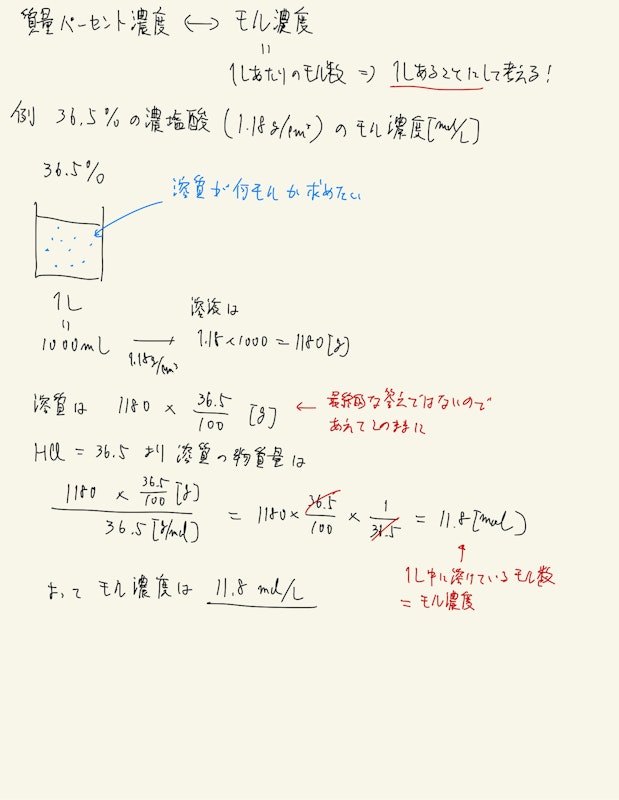 質量パーセント濃度 ⟷ モル濃度
=
1Lあたりのモル数 ⇒ 1Lあることにして考える!
例 36.5%の濃塩酸 (1.18g/cm³) のモル濃度[mol/L]
36.5%
溶質が何モルか求めたい
1L
=
1000mL
1.18g/cm³
溶液は
1.18×1000=1180[g]
溶質は 1180 × 36.5/100 [g]
← 最終的な答えではないので
あえてこのままに
HCl = 36.5 より 溶質の物質量は
1180 × 36.5/100 [g] / 36.5[g/mol] = 1180 × 36.5/100 × 1/36.5 = 11.8[mol]
↑
1L中に溶けているモル数
= モル濃度
よって モル濃度は 11.8 mol/L